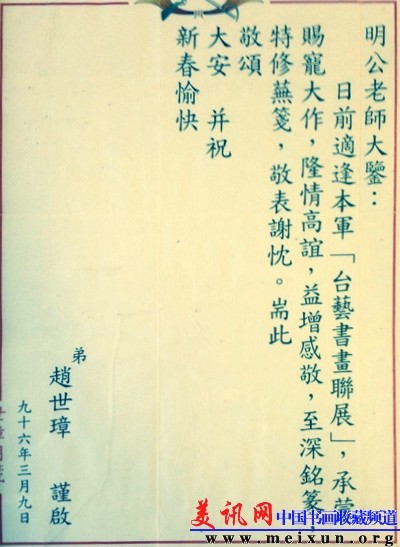 明公老師大鑒：
日前適逢本軍「台藝書畫聯展」，承蒙
賜寵大作，隆情高誼，益增感敬，至深銘篆，
特修蕪箋，敬表謝忱。耑此
敬頌
大安 并祝
新春愉快
弟 趙世璋 謹啟
九十六年三月九日
美讯网 中国书画收藏频道
www.meixun.org